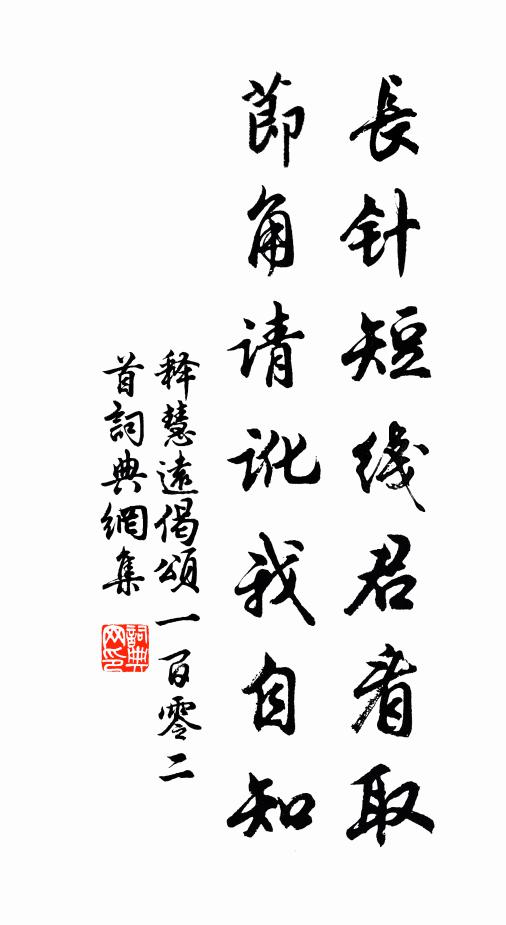 長针短綫君看取
節角请訛我自知
释慧遠偈頌一百零二
首詞典網集
詞典
网印